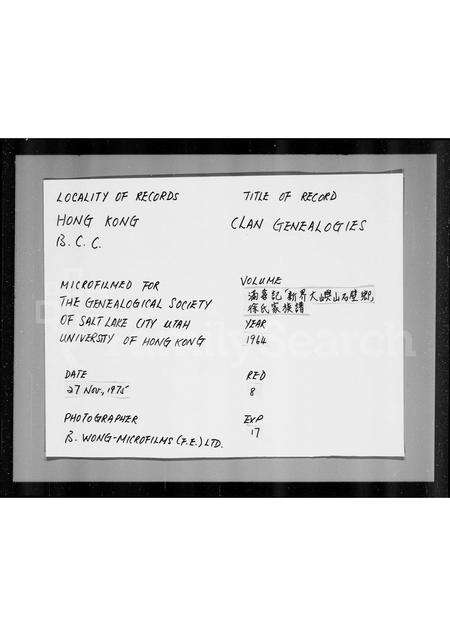 LOCALITY OF RECORDS
HONG KONG
B. C. C.
TITLE OF RECORD
CLAN GENEALOGIES
MICROFILMED FOR
THE GENEALOGICAL SOCIETY
OF SALT LAKE CITY UTAH
UNIVERSTY OF HONG KONG
VOLUME
「新界大嶼山石壁鄉」
徐氏家族譜
YEAR
1964
DATE
27 NOV, 1975
RED
8
PHOTOGRAPHER
B. WONG-MICROFILMS (F.E.) LTD.
EXP
17
FamilySearch